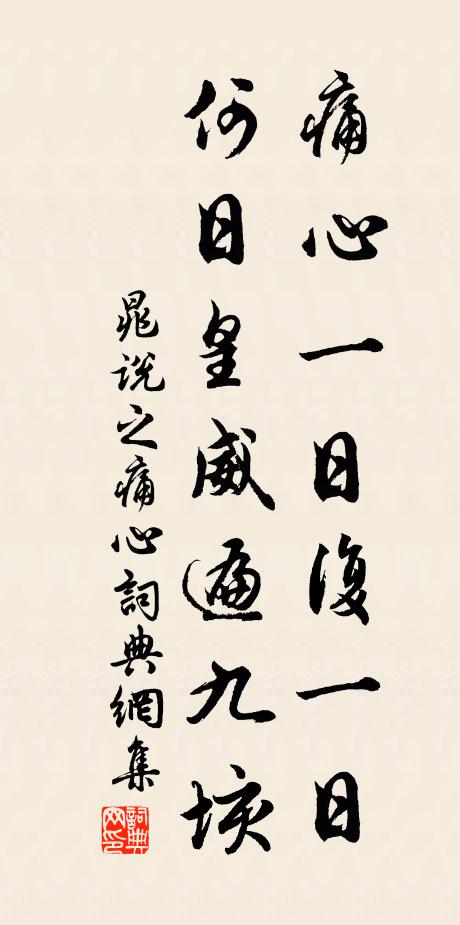 痛心一日復一日
何日皇威遍九垓
晁說之痛心詞典網集
詞典网印